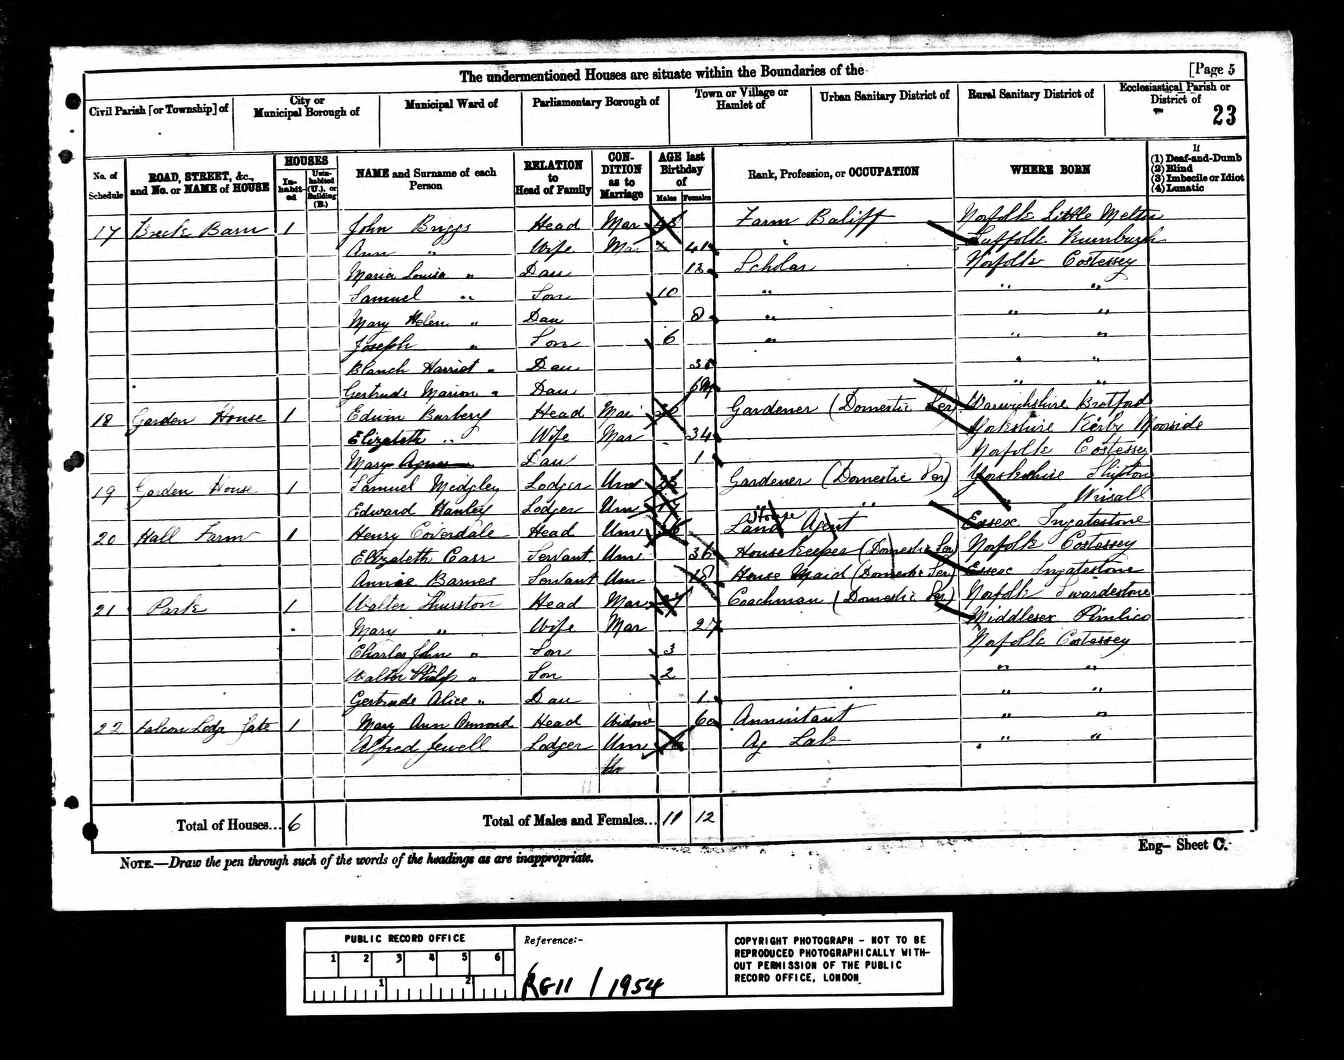 The undermentioned Houses are situate within the Boundaries of the
[Page 5
Civil Parish [or Township] of
City or Municipal Borough of
Municipal Ward of
Parliamentary Borough of
Town or Village or Hamlet of
Urban Sanitary District of
Rural Sanitary District of
Ecclesiastical Parish or District of
23
No. of Schedule
ROAD, STREET, &c., and No. or NAME of HOUSE
HOUSES
In-habit-ed
Unin-habited (U.), or Building (B.)
NAME and Surname of each Person
RELATION to Head of Family
CON-DITION as to Marriage
AGE last Birthday of
Males
Females
Rank, Profession, or OCCUPATION
WHERE BORN
If
(1) Deaf-and-Dumb
(2) Blind
(3) Imbecile or Idiot
(4) Lunatic
17 Barn 1 John Briggs Head Mar 48 Farm Baliff Norfolk Little
Ann " Wife Mar 41 Suffolk
Maria Louisa " Dau 12 Scholar Norfolk Costessey
Samuel " Son 10 " " "
Mary Helen " Dau 8 " " "
Joseph " Son 6 " " "
Blanch Harriot " Dau 3 " "
Gertrude Marion " Dau 6m " "
18 Garden House 1 Edwin Head Mar Gardener (Domestic Ser) Warwickshire
Elizabeth " Wife Mar 34 Yorkshire Kirby Moorside
Mary Agnes Dau 1 Norfolk Costessey
19 Garden House 1 Samuel Midgley Lodger Unm Gardener (Domestic Ser) Yorkshire
Edward Hanley Lodger Unm " " "
20 Hall Farm 1 Henry Coverdale Head Unm House Land Agent Essex Ingatestone
Elizabeth Carr Servant Unm 36 Housekeeper (Domestic Ser) Norfolk Costessey
Annie Barnes Servant Unm 18 House Maid (Domestic Ser) Essex Ingatestone
21 Park 1 Walter Thurston Head Mar Coachman (Domestic Ser) Norfolk Swardestone
Mary " Wife Mar 27 Middlesex Pimlico
Charles John " Son 3 Norfolk Costessey
Walter Philip " Son 2 " "
Gertrude Alice " Dau 1 " "
22 Lodge Gate 1 Mary Ann Head Widow 60 Annuitant " "
Alfred Jewell Lodger Unm Ag Lab " "
Total of Houses... 6
Total of Males and Females... 11 12
NOTE.—Draw the pen through such of the words of the headings as are inappropriate.
Eng– Sheet C.
PUBLIC RECORD OFFICE
1 2 3 4 5 6
1 2
Reference:-
RG11 / 1954
COPYRIGHT PHOTOGRAPH – NOT TO BE
REPRODUCED PHOTOGRAPHICALLY WITH-
OUT PERMISSION OF THE PUBLIC
RECORD OFFICE, LONDON